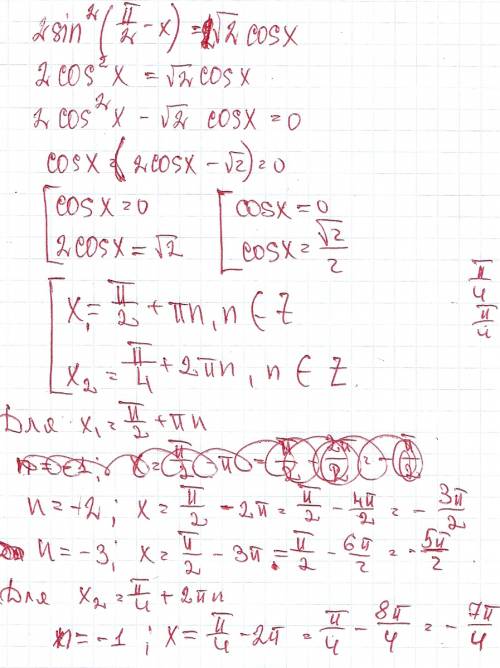 2sin²(π/2 - x) = √2 cosx
2cos²x = √2 cosx
2cos²x - √2 cosx = 0
cosx = (2cosx - √2) = 0
[ cosx = 0 [ cosx = 0
2cosx = √2 cosx = √2/2
[ x₁ = π/2 + πn, n ∈ Z
x₂ = π/4 + 2πn, n ∈ Z.
π/4
π/4
Для x₁ = π/2 + πn
n = -2; x = π/2 - 2π = π/2 - 4π/2 = - 3π/2
n = -3; x = π/2 - 3π = π/2 - 6π/2 = - 5π/2
Для x₂ = π/4 + 2πn
n = -1; x = π/4 - 2π = π/4 - 8π/4 = - 7π/4